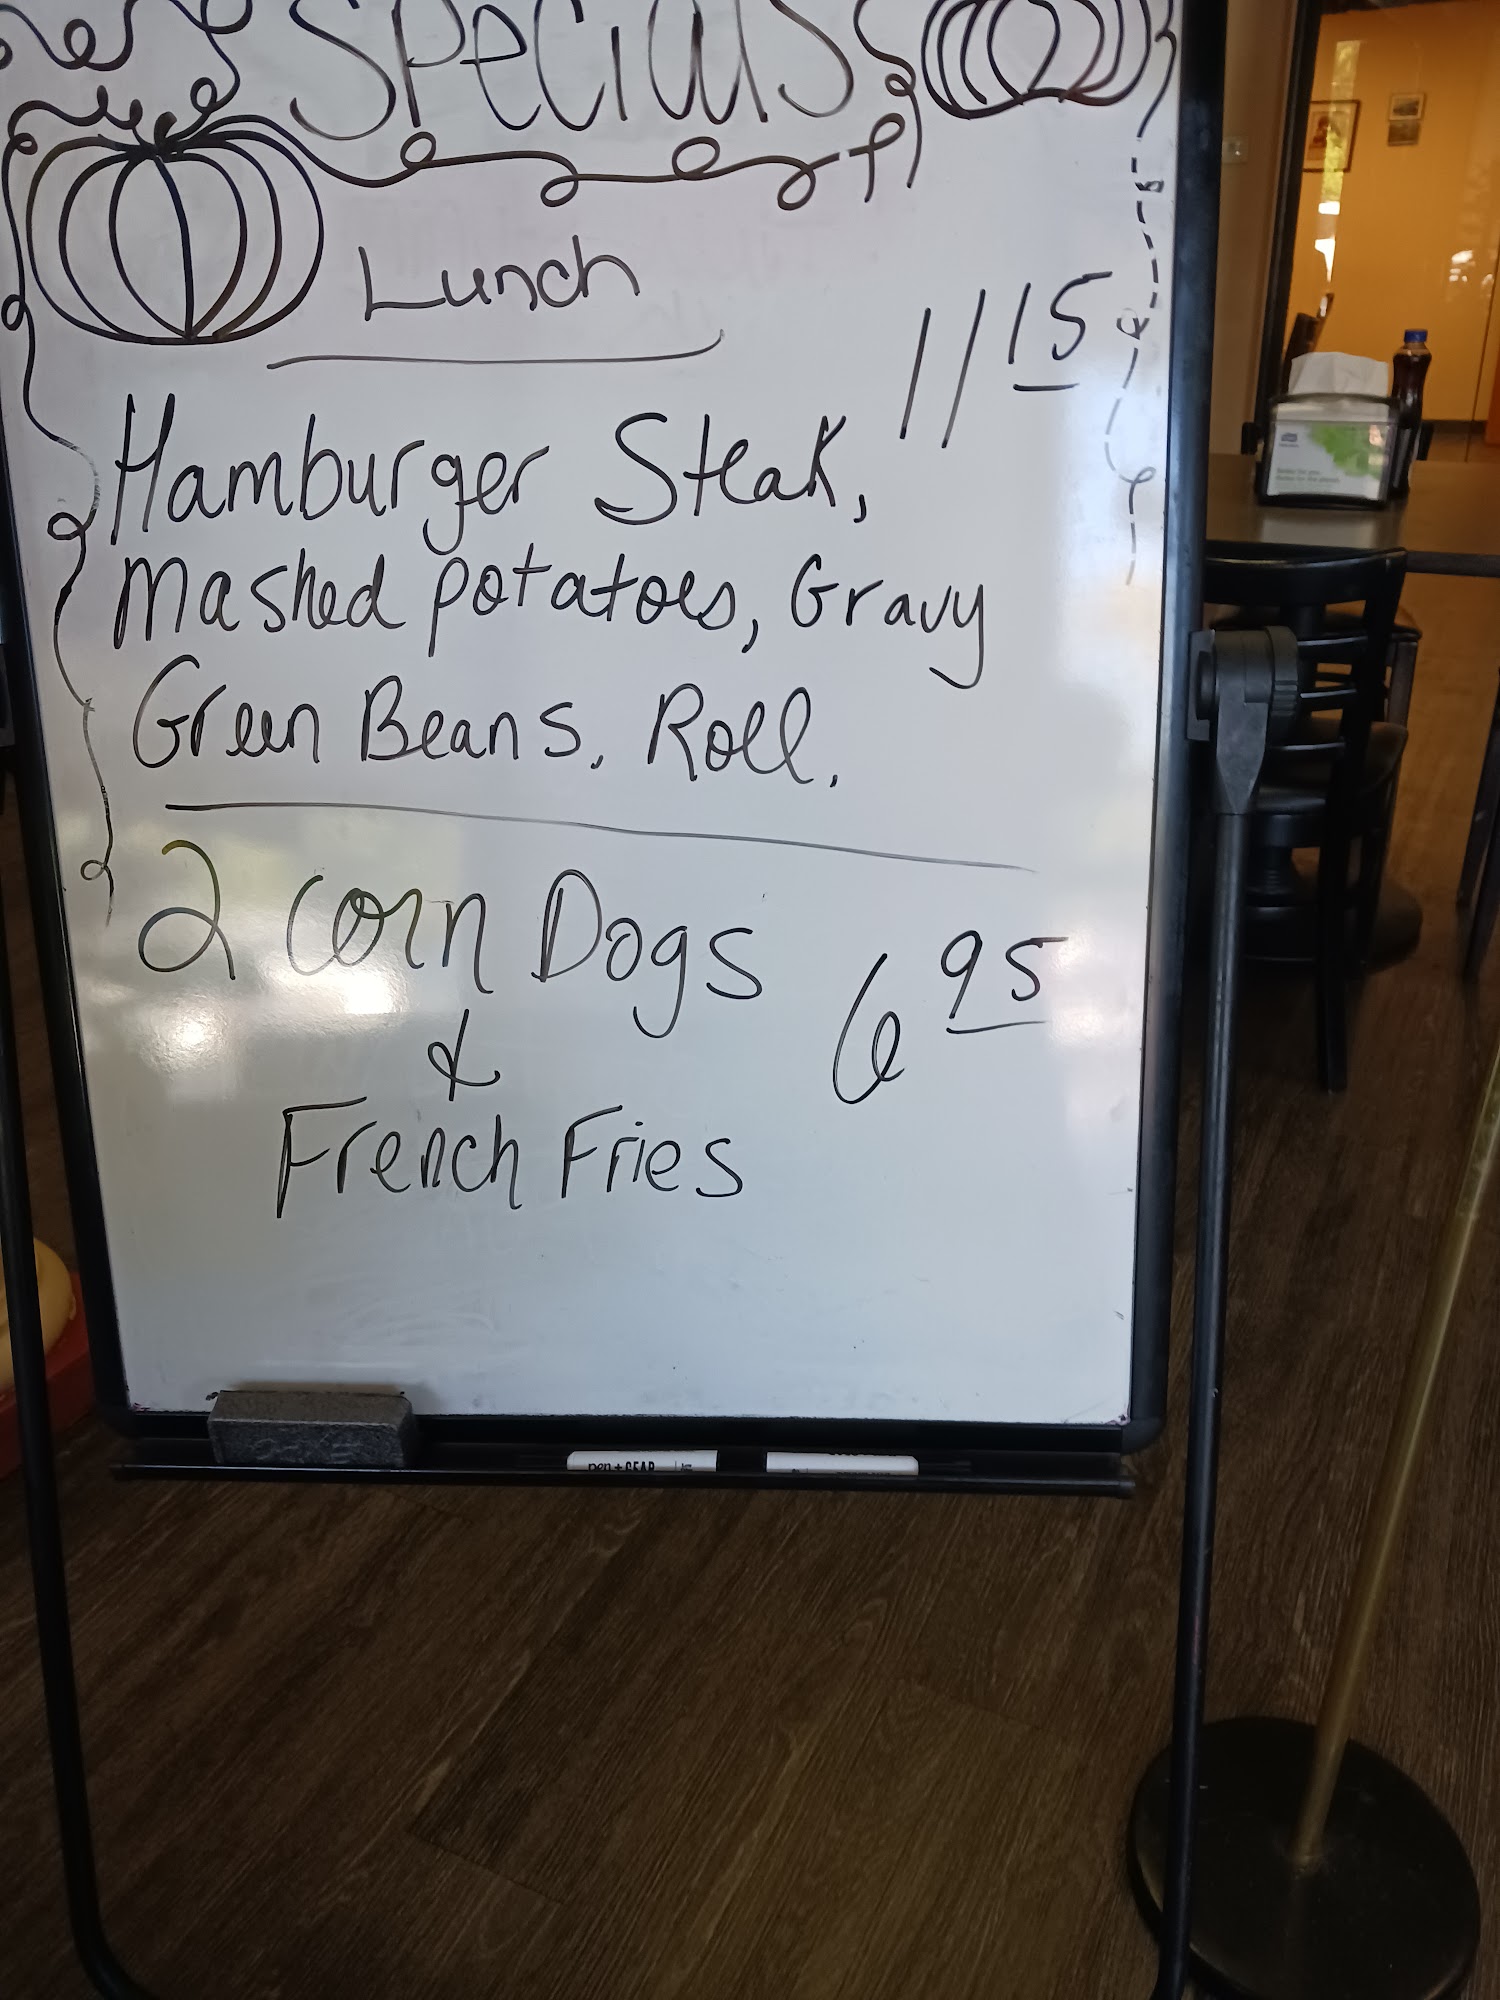 Specials
Lunch
11 15
Hamburger Steak,
Mashed potatoes, Gravy
Green Beans, Roll.
2 Corn Dogs
6 95
&
French Fries
pen+GEAR